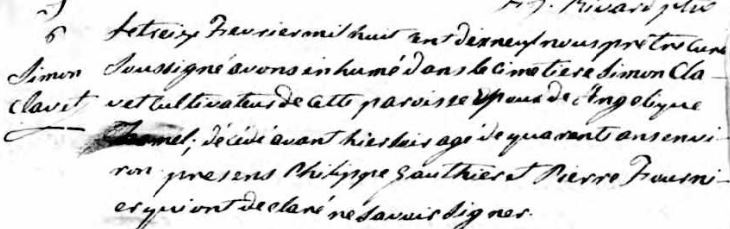 6
Simon
Clavet
Le treize Fevrier mil huit cent dixneuf nous prêtre curé
Soussigné avons inhumé dans le cimetiere Simon Cla-
vet Cultivateur de cette paroisse Epoux de Angelique
décédé avant hier soir agé de quarante ans envi-
ron presens Philippe Gauthier et Pierre Fourni-
er qui ont declaré ne savoir signer.